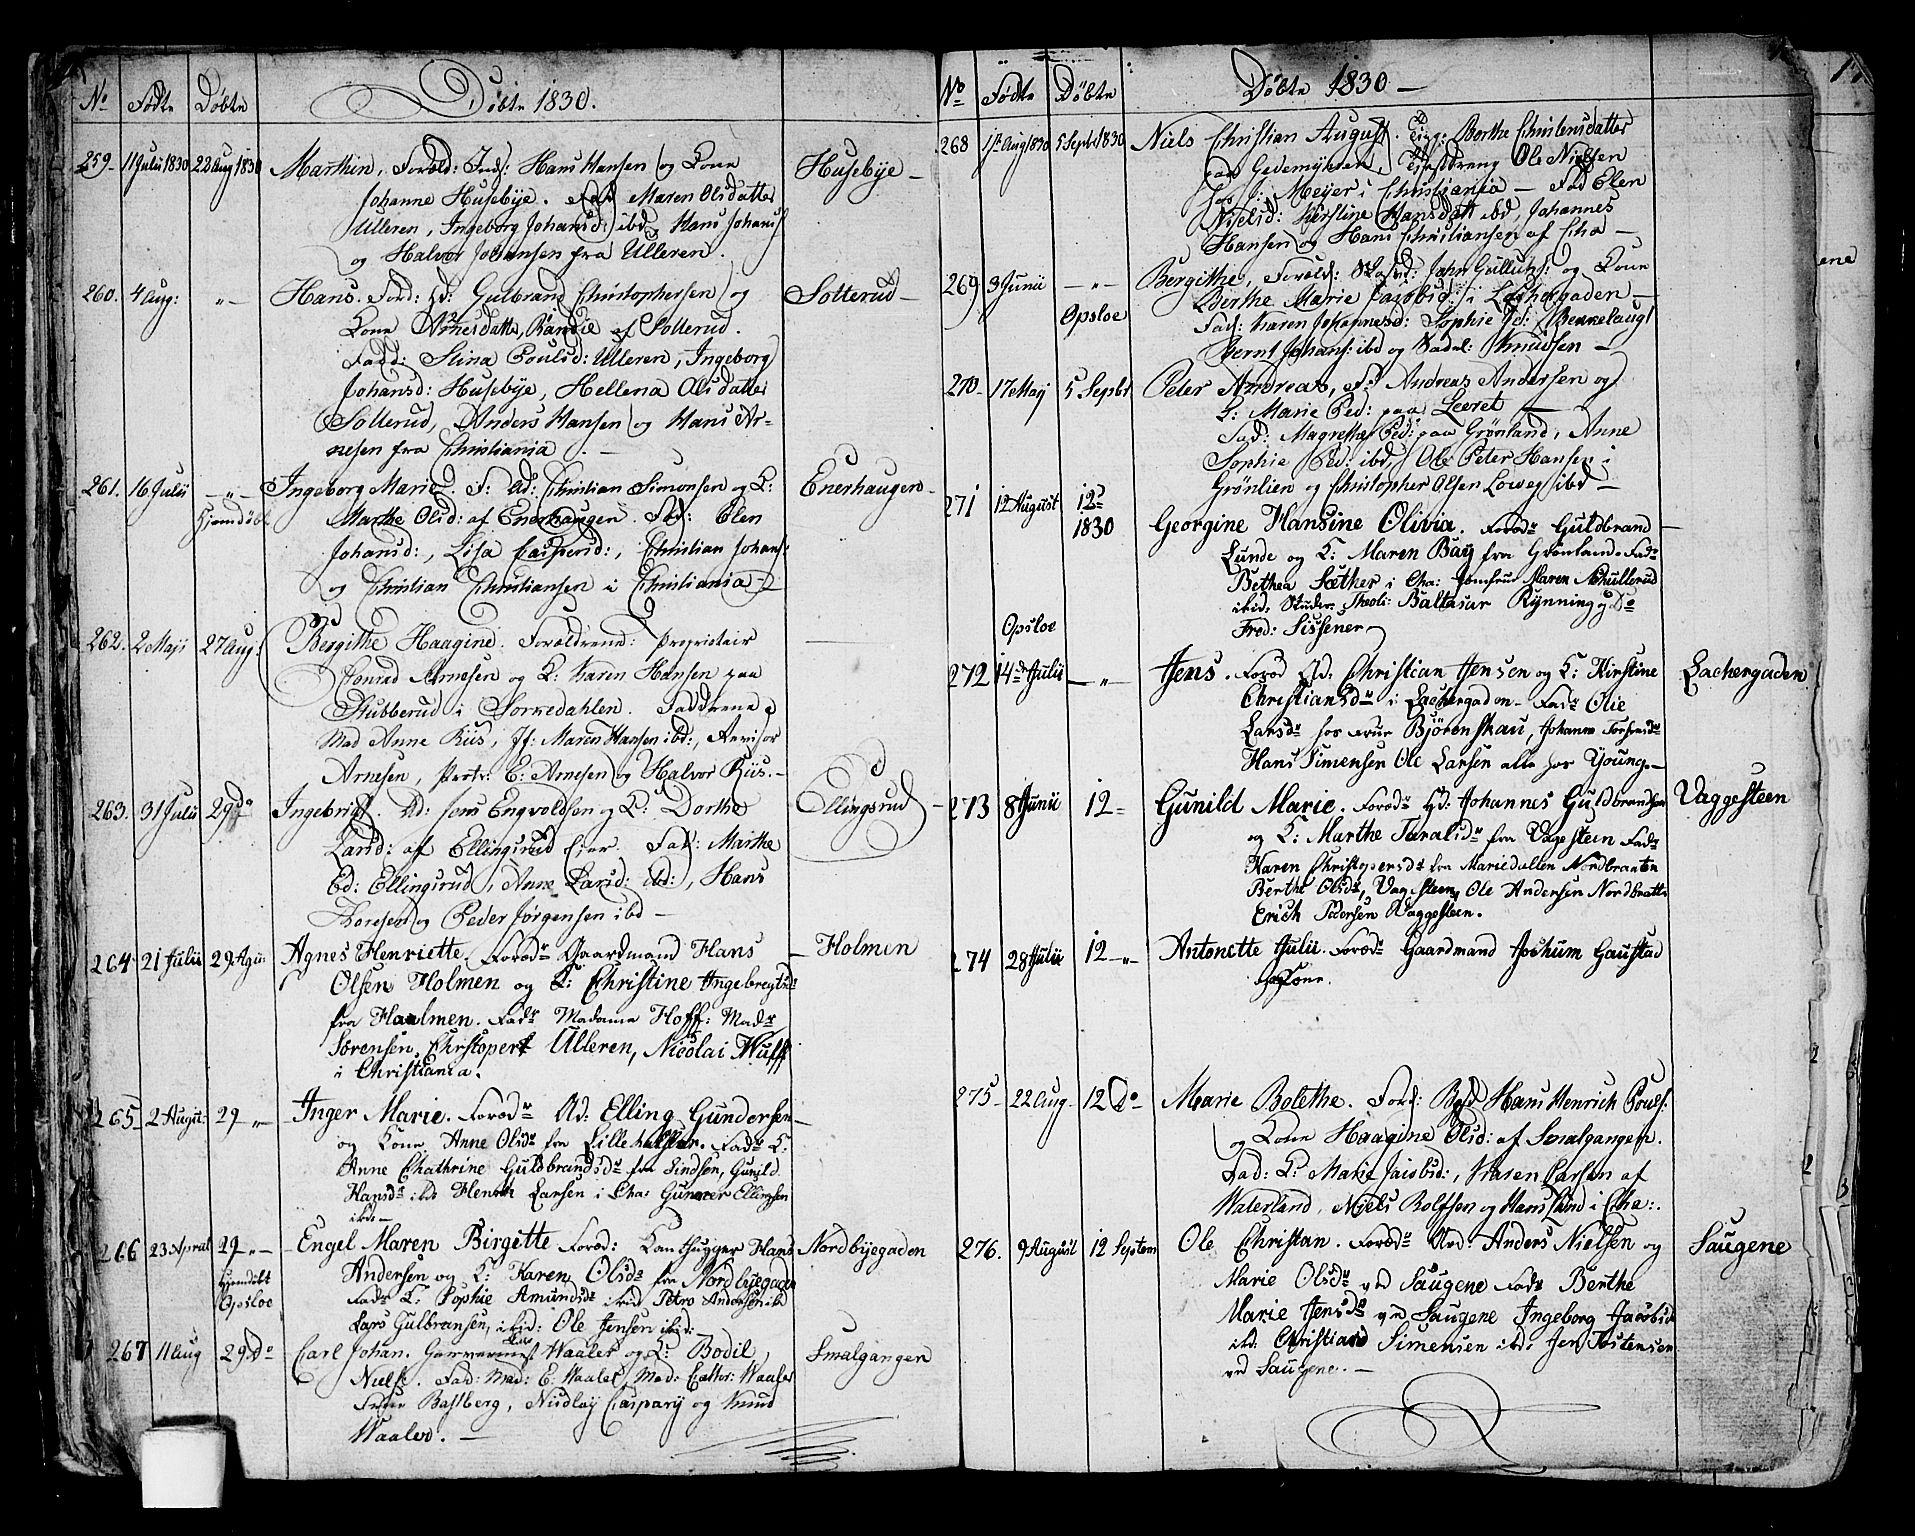 No Fødte Døbte Døbte 1830.
259. 11 Julii 1830 22 Aug 1830 Marthin, Foræld: Ind: Hans Hansen og Kone Husebye
Johanne Husebye. Fad Maren Olsdatter
Ulleren, Ingeborg Johansd: ibd, Hans Johans
og Halvor Johansen fra Ulleren.
260. 4 Aug: Hans. Foræl: Gulbrand Christophersen og Solterud
Kone Arnesdatter Randie af Sollerud.
Fadd: Stina Poulsd: Ulleren, Ingeborg
Johansd: Husebye, Hellena Olsdatter
Sollerud, Anders Hansen og Hans Ar-
nesen fra Christiania.
261. 16 Julii Ingeborg Marie. F: Ad: Christian Simonsen og K: Enerhaugen
Hjemdøbt Marthe Olsd: af Enerhaugen. Fad: Elen
Johansd:, Lisa Caspersd:, Christian Johans:
og Christian Christiansen i Christiania
262. 2 Maji 27 Aug: Bergithe Haagine. Forældrene: Proprietair
Konrad Arnesen og K: Karen Hansen paa
Stubberud i Sørkedahlen. Faddrene
Mad Anne Riis, Jf: Maren Hansen ibd:, Revisor
Arnesen, E: Arnesen og Halvor Riis.
263. 31 Julii 29 do Ingebrigt. Ad: Jens Engvoldsen og K: Dorthe Ellingsrud
Larsd: af Ellingsrud Eier. Fad: Marthe
Ed: Ellingsrud, Anne Larsd: ibd:, Hans
Thoresen og Peder Jørgensen ibd
264 21 Julii 29 Agu Agnes Henriette. Foræd Gaardmand Hans Holmen
Olsen Holmen og K: Christine Ingebregtsd
fra Haalmen. Fad Madame Hoff: Mad
Sørensen, Christopert Ulleren, Nicolai Wulff
i Christiania.
265 2 August 29 Inger Marie. Foræd Ad: Elling Gundersen
og Kone Anne Olsd fra Lille. Fad K:
Anne Chathrine Guldbrandsd fra Sindsen, Gunild
Hansd ibd Henrik Larsen i Cha: Gunner Ellingsen
ibd
266 23 April 29 Engel Maren Birgitte Foræd: Hans Nordbyegaden
Hjemdøbt Andersen og K: Karen Olsd fra Nordbyegaden
Opsloe Fad K: Sophie Amundsd ibid Petro Andersen ibd
Lars Gulbransen, ibid: Ole Jensen ibid:
267 11 Aug 29 Do Carl Johan. Waaler og K: Bodil Smalgangen
Niels. Fad: Mad: E: Waaler, Mad: Cathr: Waaler
Bastberg, Nicolay Caspary og Knud
Waaler.
No Fødte Døbte Døbte 1830
268 1ste Aug 1830 5 Septbr 1830 Niels Christian August. Pige: Berthe Christensdatter
paa Gedemyhren, Ole Nielsen
hos Meyer i Christiania Fad Elen
Nielsd: Kirstine Hansdatt ibd, Johannes
Hansen og Hans Christiansen af Cha
269 3 Junii Bergithe, Foræld: John Gulluchs: og Kone
Opsloe Berthe Marie Jacobsd: i Lachergaden
Fad: Karen Johannesd: Sophie Bekkelaugt
Bernt Johans: ibd og Sadel: Knudsen
270 17 May 5 Septbr Peter Andreas, F: Andreas Andersen og
K: Marie Ped: paa Leeret
Fad: Magrethe Ped: paa Grønland, Anne
Sophie Ped: ibd, Ole Peter Hansen i
Grønlien og Christopher Olsen Lovey ibd
271 12 August 12te 1830 Georgine Hansine Olivia. Foræd Guldbrand
Lunde og K: Maren Bay fra Grønland. Fad
Bethea Sæther i Cha: Jomfrue Maren Schullerud
ibid. Studer. Theoli: Baltasar Rynning og Do
Fred: Sissener
Opsloe
272 14de Julii Jens. Foræd Ad. Christian Jensen og K: Kirstine Lachergaden
Christiansd i Lachergaden. Fad Olie
Larsd hos Frue Bjørenskau, Johanne
Hans Simensen Ole Larsen alle hos Young.
273 8 Junii 12 Gunild Marie. Foræd Johannes Guldbrandsen Vaggesteen
og K: Marthe Taralsd fra Vagesteen Fad
Karen Christopersd fra Mariedallen Nordbraaten
Berthe Olsd, Vagsteen, Ole Andersen Nordbraatt
Erich Pedersen Vaggesteen.
274 28 Julii 12 Antonette Julii. Foræd Gaardmand Jochum Gaustad
og Kone.
275 22 Aug 12 Do Marie Bolethe. Foræl: Hans Henrich Pouls:
og Kone Haagine Olsd: af Smalgangen.
Fad: K: Marie Jacobsd:, Karen Larsen af
Waterland, Niels Rolfsen og Hans Lund i Cha:
276. 9 August 12 Septem Ole Christan. Foræd Anders Nielsen og Saugene
Marie Olsd ved Saugene Fad Berthe
Marie Jensd ved Saugene Ingeborg Jacobsd
ibd: Christian Simensen ibd. Jen Tostensen
ved Saugene.